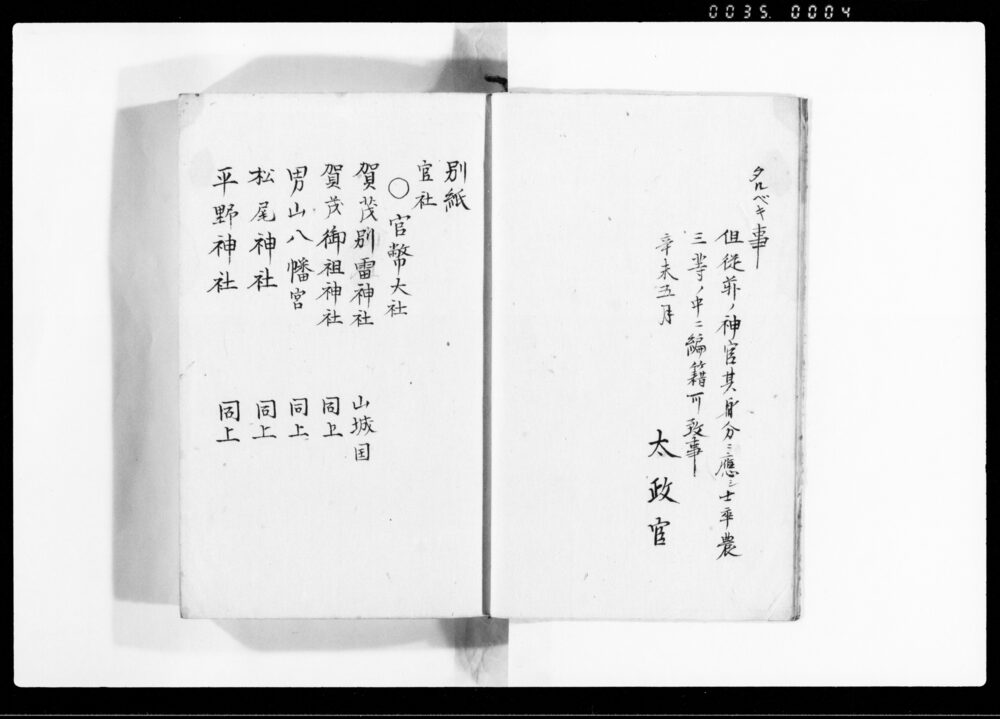 0035. 0004
タルベキ事
但従前ノ神官其身分ニ應シ士卒農
三等ノ中ニ編籍可致事
辛未五月
太政官
別紙
官社
○官幣大社
賀茂別雷神社 山城国
賀茂御祖神社 同上
男山八幡宮 同上
松尾神社 同上
平野神社 同上